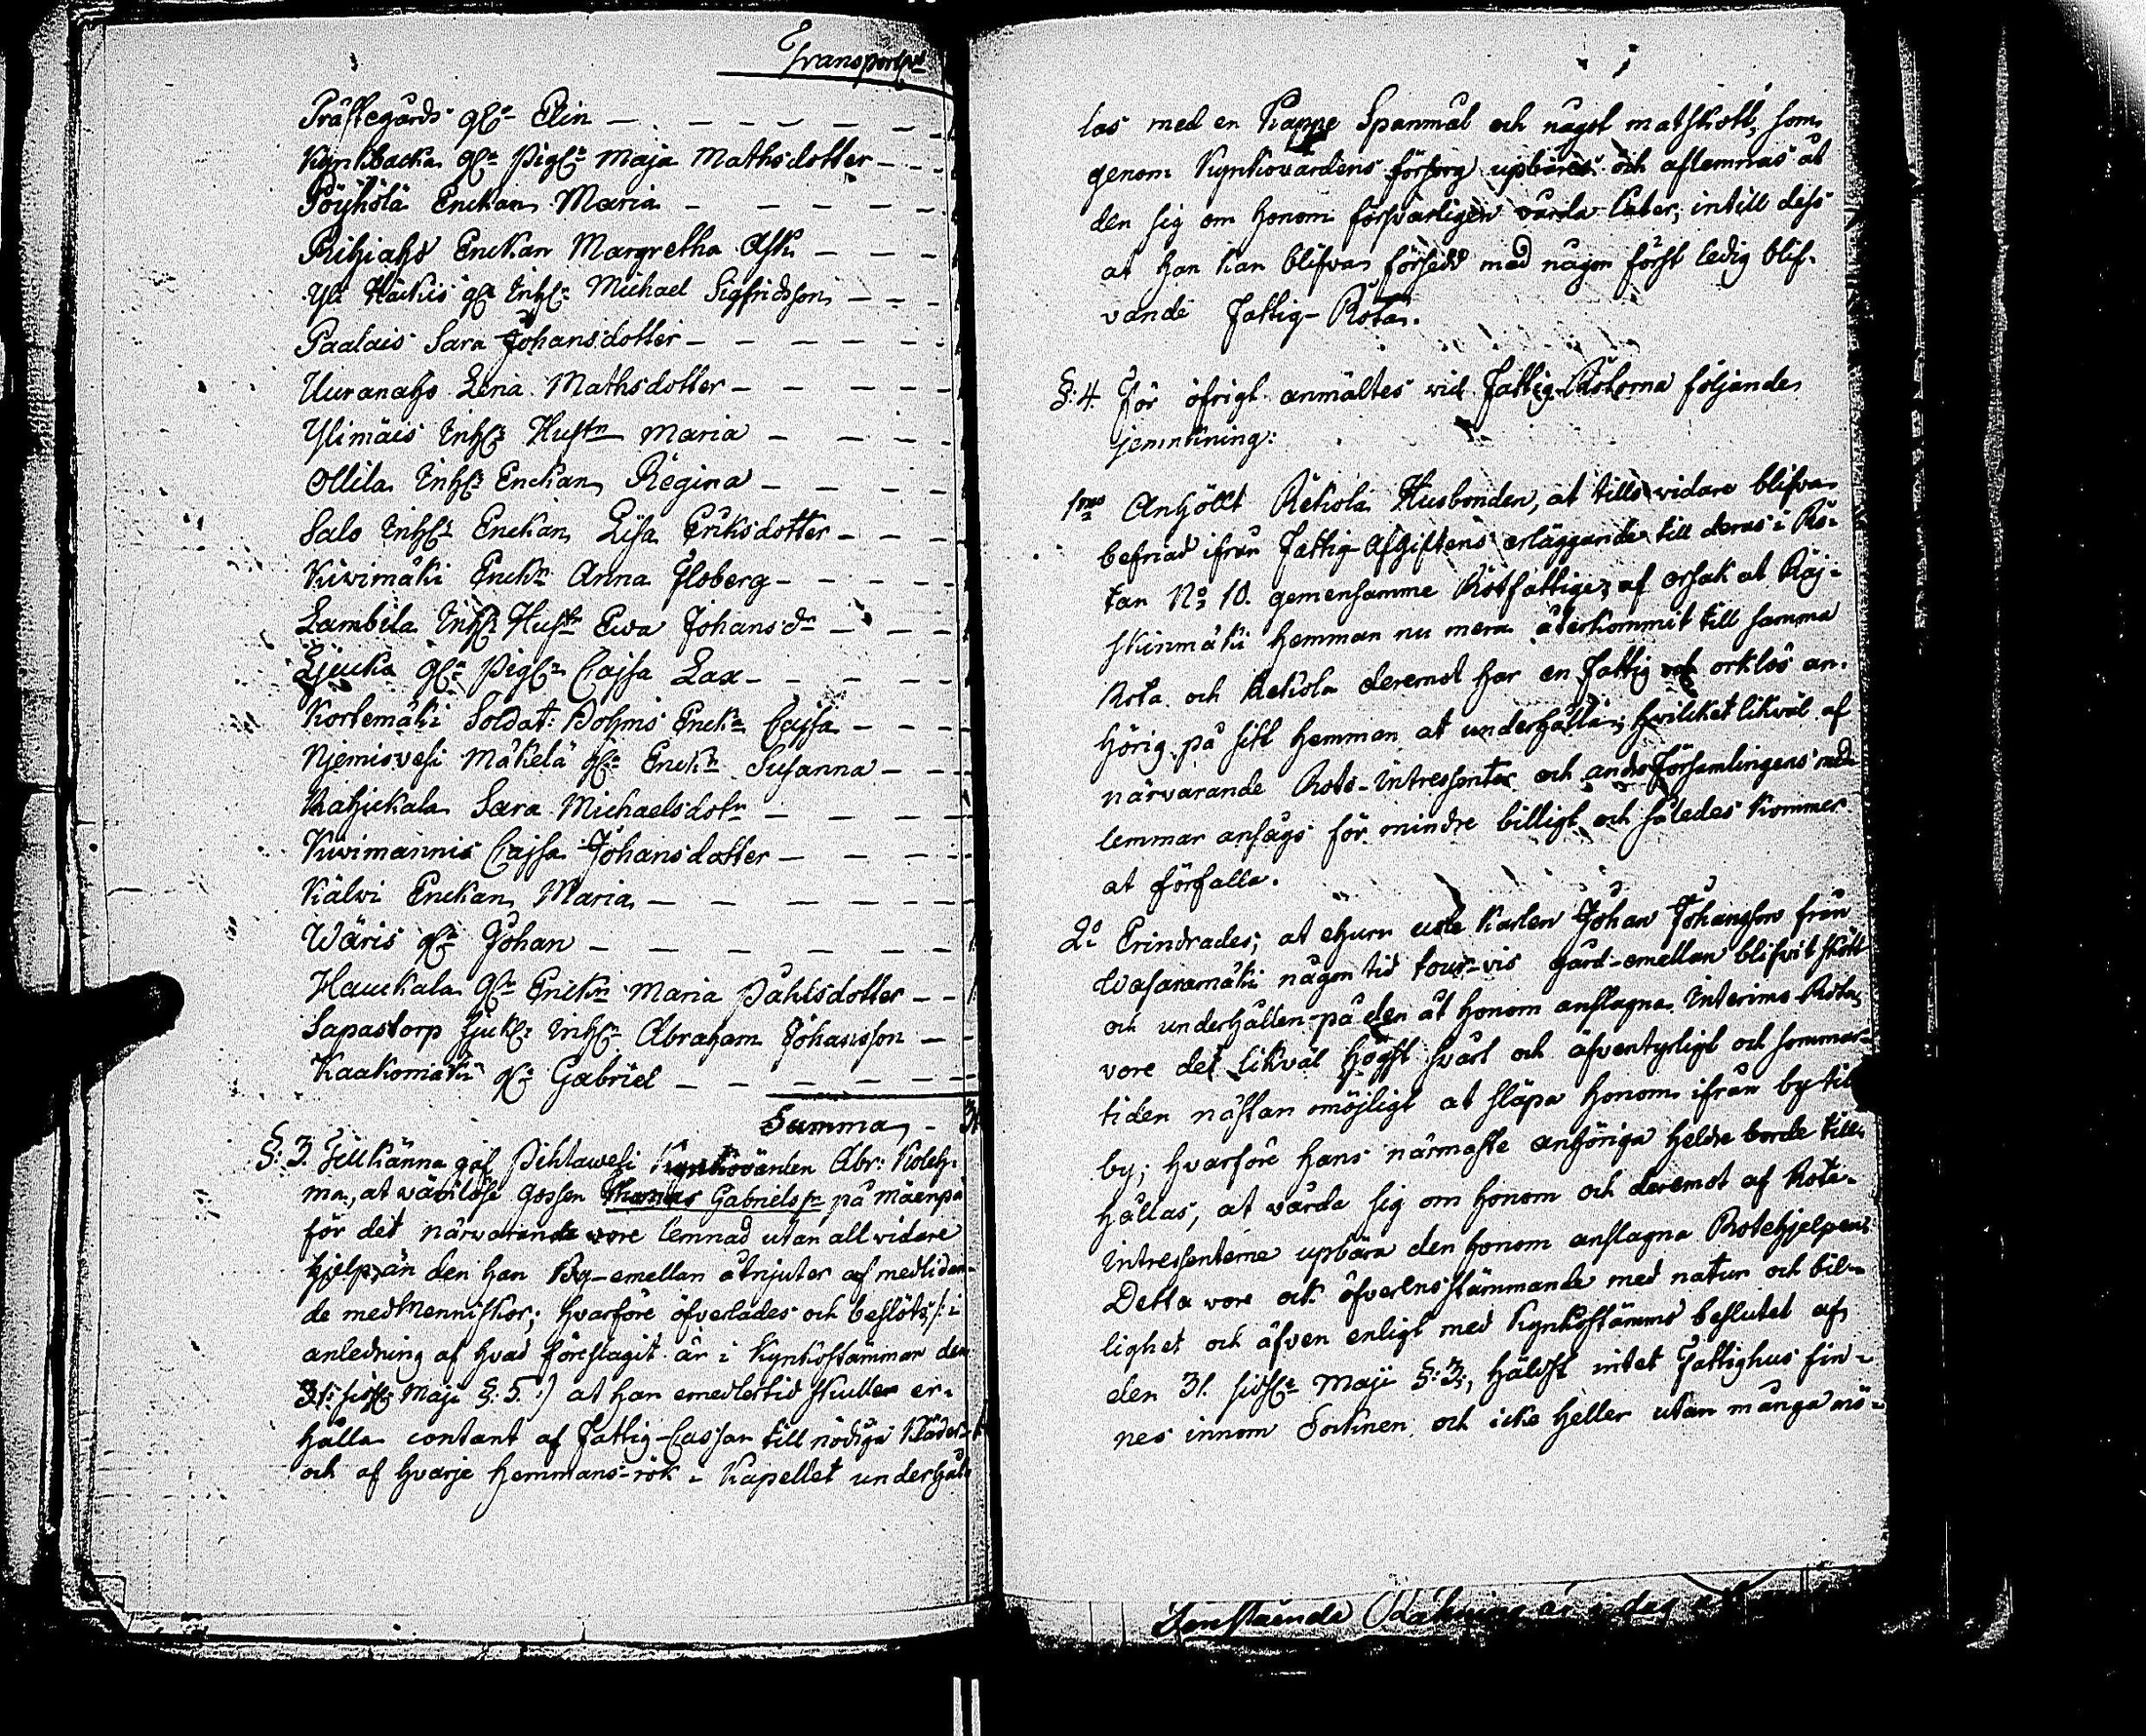 Transport
Prästegårds gl: Elin
Kyrkbacka gl: Pigl: Maja Mathsdotter
Pöyhölä Enckan Maria
Rihiaho Enckan Margretha Ask
Yli Häckis gl: Inhs: Michael Sigfridsson
Paalais Sara Johansdotter
Uuranaho Lena Mathsdotter
Ylimäis Inhs: Hustn Maria
Ollila Inhs: Enckan Regina
Salo Inhs: Enckan Lisa Eriksdotter
Kivimäki Enckn Anna Floberg
Lambila Inhs: Hustn Ewa Johansdr
Ljeuka gl: Pigl: Cajsa Lax
Kortemäki Soldat: Dohms Enckn Cajsa
Njemisvesi Mäkelä gl: Enckn Susanna
Rahickala Sara Michaelsdotr
Kivimannis Cajsa Johansdotter
Kälvi Enckan Maria
Wäris gl: Johan
Hauckala gl: Enckn Maria Påhlsdotter
Sapastorp sjukl: Inhs: Abraham Johansson
Kaakomäki gl: Gabriel
Summa 31
§: 3. Tillkänna gaf Pihlawesi Kyrkovärden Abr: Koleh-
ma, at wärnlöse gossen Thomas Gabrielssn på Mäenpä
för det närvarande wore lemnad utan all vidare
hjelp, än den han By-emellan åtnjuter af medlidan-
de medmenniskor; hvarföre öfverlades och beslöts, /: i
anledning af hvad föreslagit är i Kyrkostämman den
31: sistl: Maji §: 5. :/ at han emedlertid skulle er-
hålla contant af Fattig-Cassan till nödiga Kläder
och af hvarje hemmans-rök i Kapellet underhål-
las med en Kappe Spanmål och något matskott, som
genom Kyrkovärdens försorg upbäres och aflemnas åt
den sig om honom försvarligen vårda låter, intill dess
at han kan blifva försedd med någon först ledig blif-
vande Fattig-Rota.
§: 4. För öfrigt anmältes vid Fattig-Rotorna följande
jemnkning:
1mo Anhöllt Rekola Husbonden, at tills vidare blifva
befriad ifrån Fattig-Afgiftens erläggande till deras i Ro-
tan No 10. gemensamme Rotfattige, af orsak at Räj-
skinmäki hemman nu mera återkommit till samma
Rota och Rekola deremot har en fattig och orklös an-
hörig på sitt hemman at underhålla; hvilcket likväl af
närvarande Rote-Intressenter och andre Församlingens med-
lemmar ansågs för mindre billigt och således kommer
at förfalla.
2o Erindrades, at ehuru usle Karlen Johan Johansson från
Wasaramäki någon tid tour-vis gård-emellan blifvit skött
och underhållen på den åt honom anslagna Interims-Rota,
vore det likväl högst svårt och äfventyrligt och sommar-
tiden nästan omöjligt at släpa honom ifrån by till
by; hvarföre hans närmaste anhöriga heldre borde till-
hållas, at vårda sig om honom och deremot af Rote-
intressenterne upbära den honom anslagna Rotehjelpen.
Detta vore ock öfverensstämmande med natur och bil-
lighet och äfven enligt med Kyrkostämmo beslutet af
den 31. sistl: Maji §: 3, hälst intet Fattighus fin-
nes innom Socknen och icke heller utan många mö-